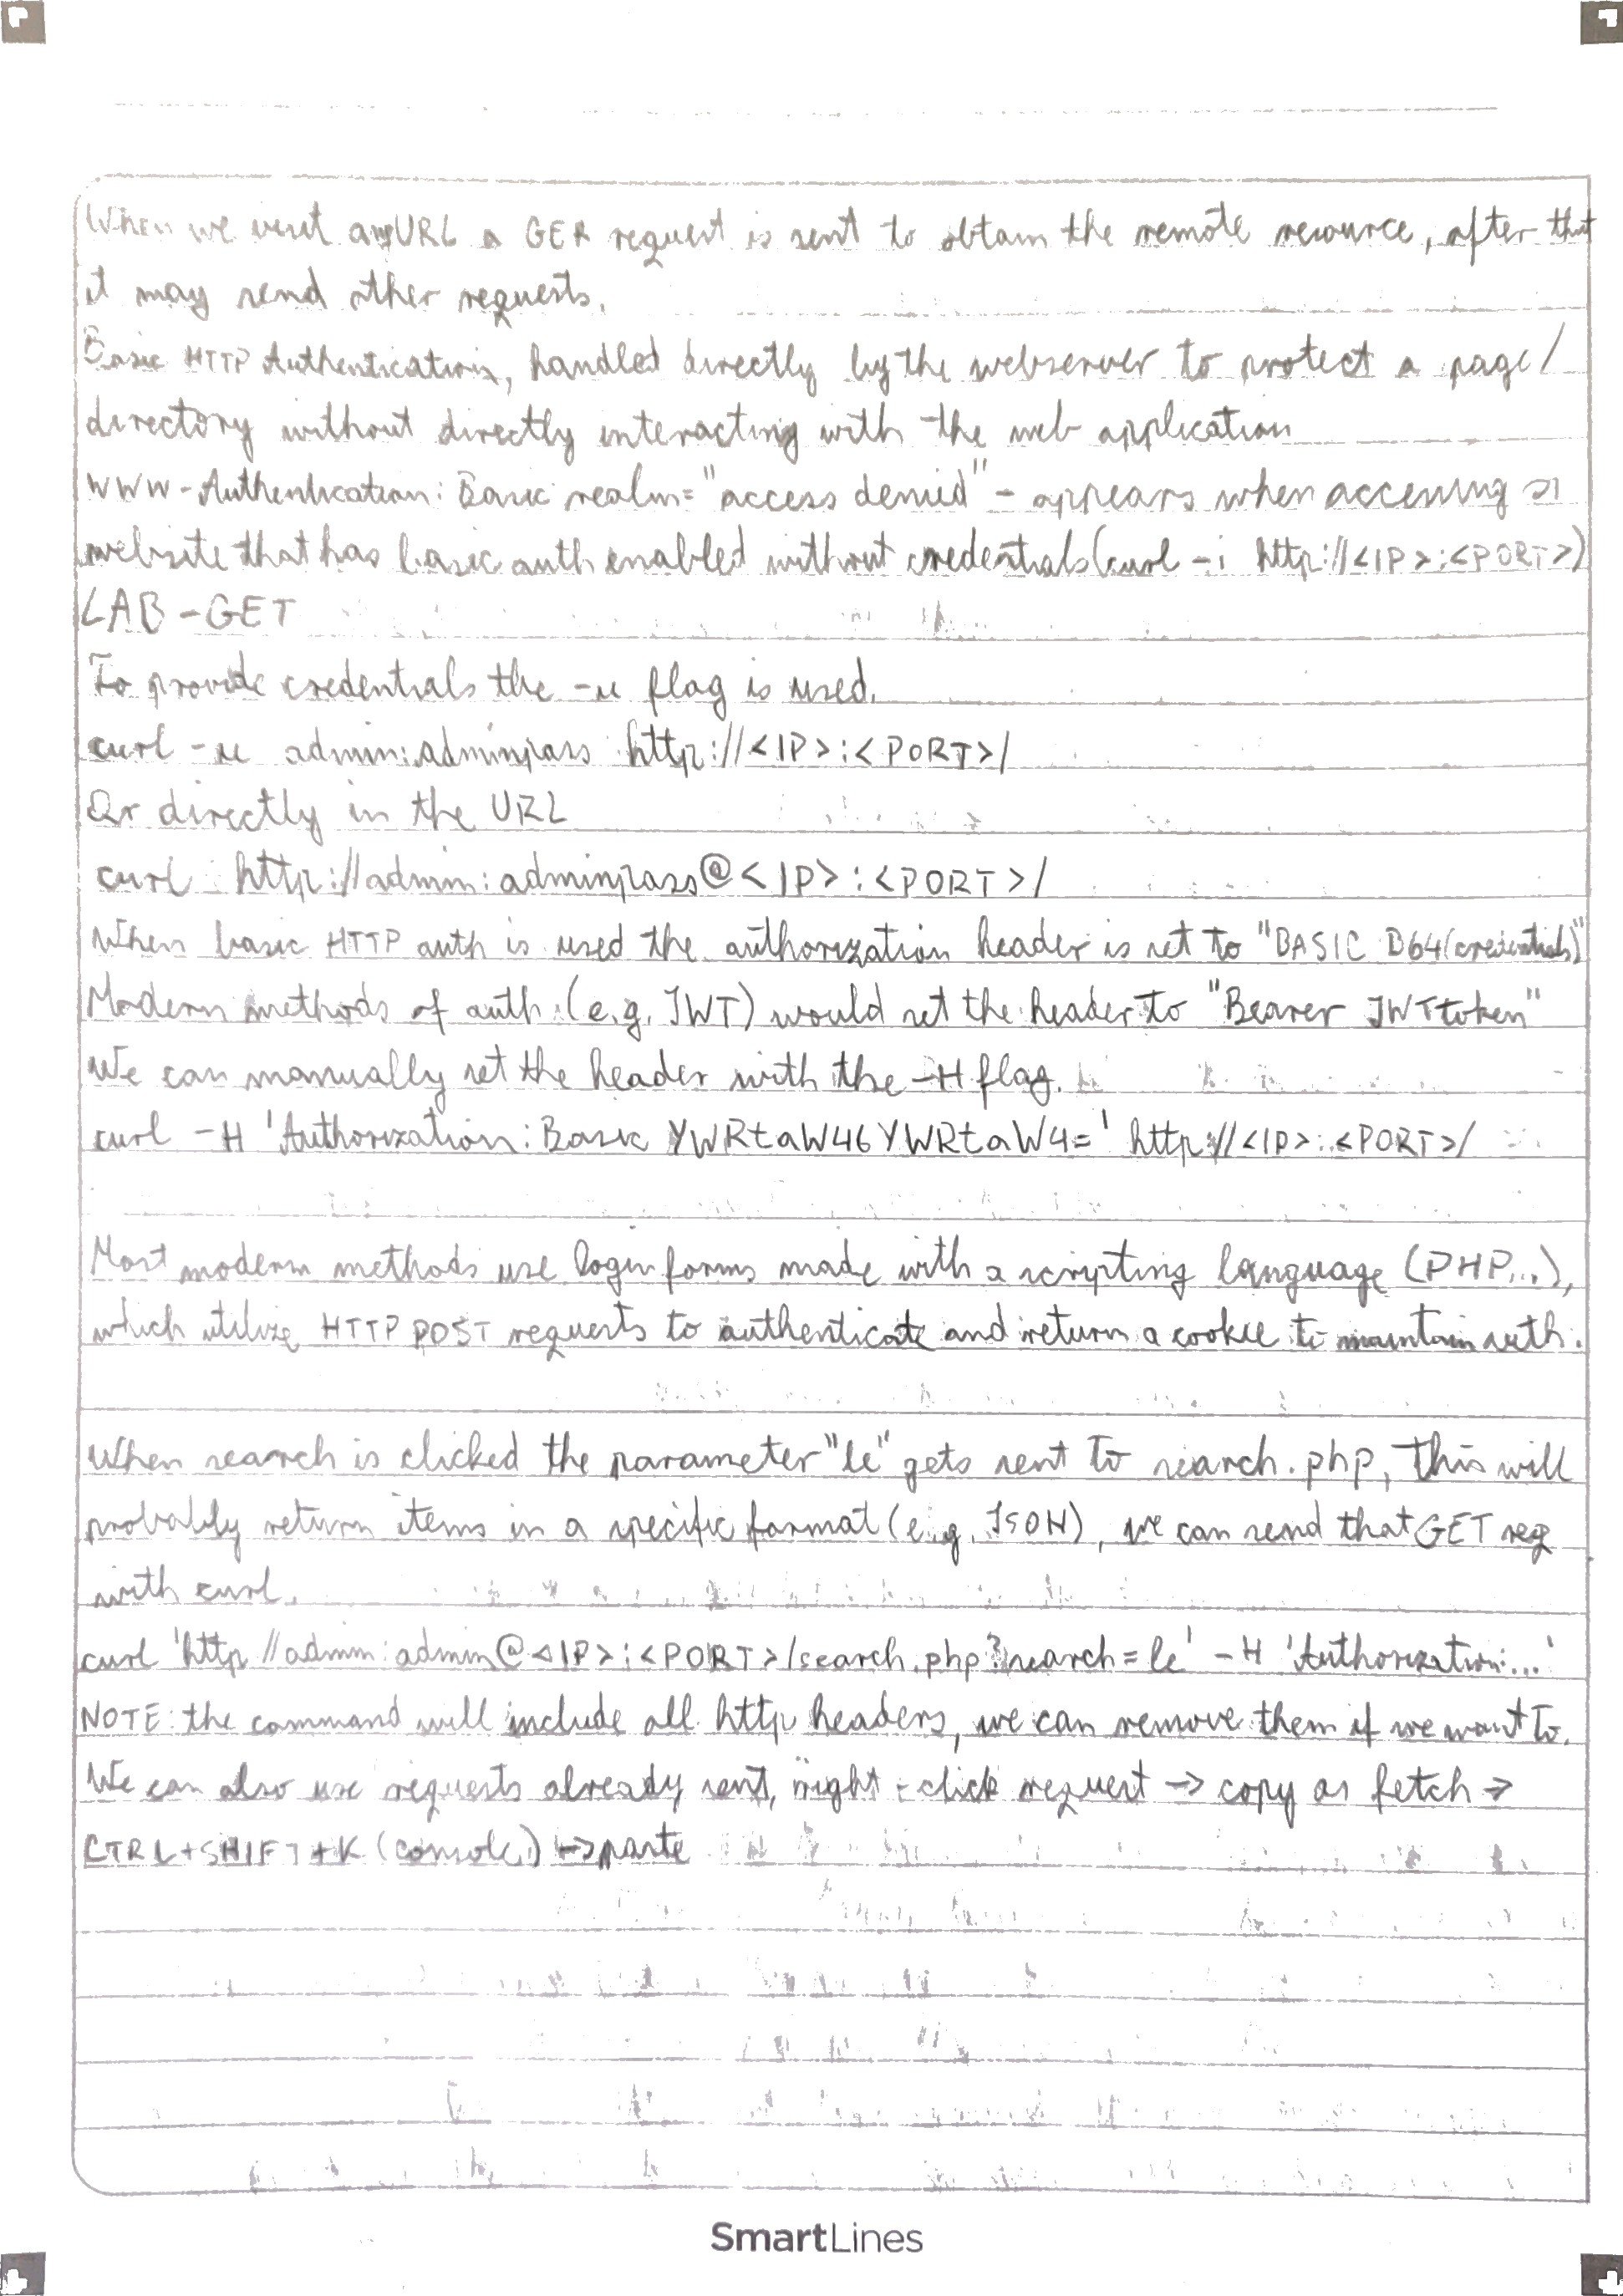 When we visit any URL a GER request is sent to obtain the remote resource, after that
it may send other requests.
Basic HTTP Authentication, handled directly by the webserver to protect a page/
directory without directly interacting with the web application
WWW-Authentication: Basic realm="access denied" - appears when accessing a
website that has basic auth enabled without credentials (curl -i http://<IP>:<PORT>)
LAB - GET
To provide credentials the -u flag is used.
curl -u admin:adminpass http://<IP>:<PORT>/
Or directly in the URL
curl http://admin:adminpass@<IP>:<PORT>/
When basic HTTP auth is used the authorization header is set to "BASIC B64(credentials)"
Modern methods of auth (e.g. JWT) would set the header to "Bearer JWTtoken"
We can manually set the header with the -H flag.
curl -H 'Authorization: Basic YWRtaW46YWRtaW4=' http://<IP>:<PORT>/
Most modern methods use login forms made with a scripting language (PHP...),
which utilize HTTP POST requests to authenticate and return a cookie to maintain auth.
When search is clicked the parameter "le" gets sent to search.php, This will
probably return items in a specific format (e.g. JSON), we can send that GET req
with curl.
curl 'http://admin:admin@<IP>:<PORT>/search.php?search=le' -H 'Authorization:...'
NOTE: the command will include all http headers, we can remove them if we want to.
We can also use requests already sent, right-click request -> copy as fetch ->
CTRL+SHIFT+K (console) -> paste
SmartLines